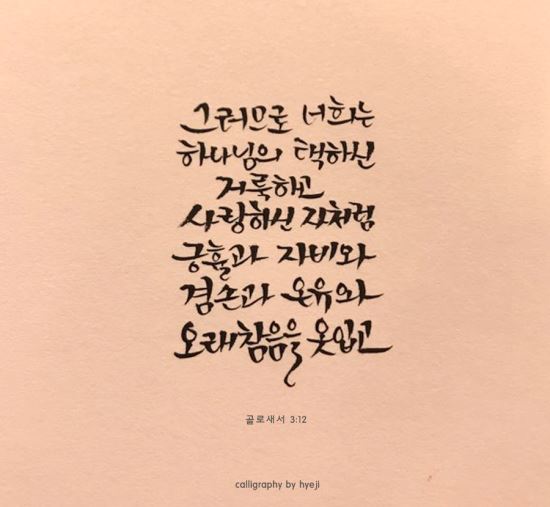 그러므로 너희는
하나님의 택하신
거룩하고
사랑하신 자처럼
긍휼과 자비와
겸손과 온유와
오래참음을 옷입고
골로새서 3:12
calligraphy by hyeji